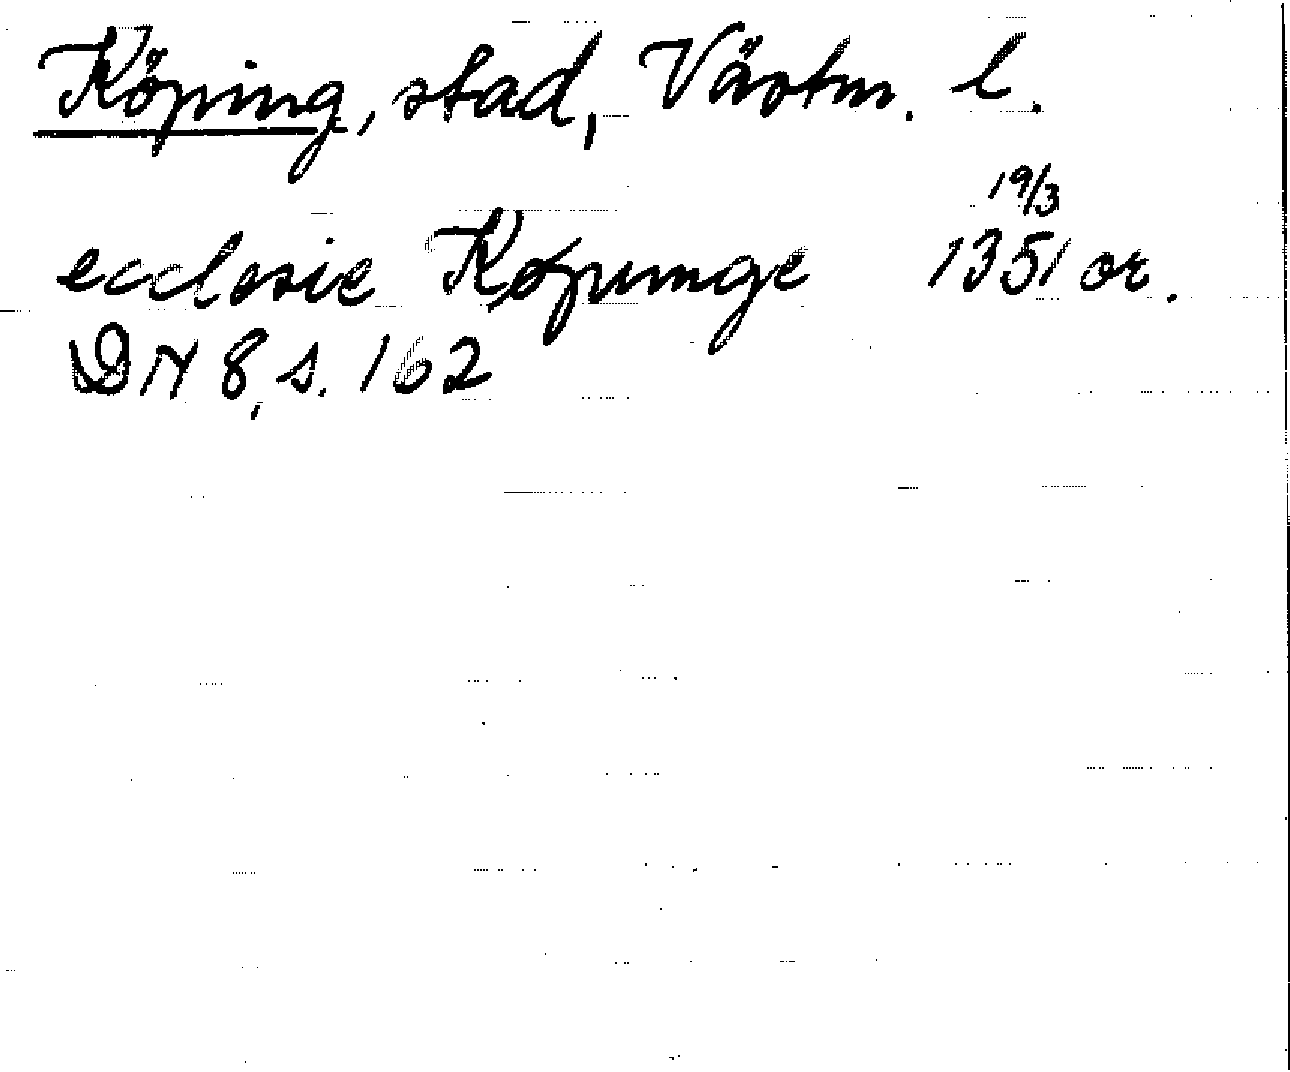 Köping, stad, Västm. l.
19/3
ecclesie Køpunge 1351 or.
DN 8, s. 162